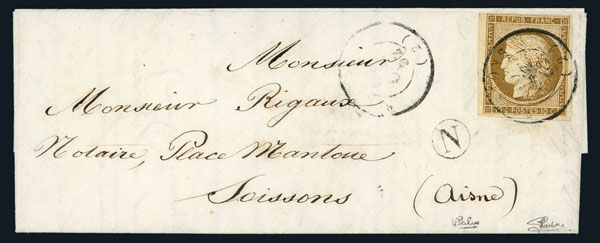 REPUB. FRANC.
10 C. POSTES 10 C.
(2)
(2)
Monsieur
Monsieur Rigaux
Notaire, Place Mantoue
Soissons (Aisne)
N